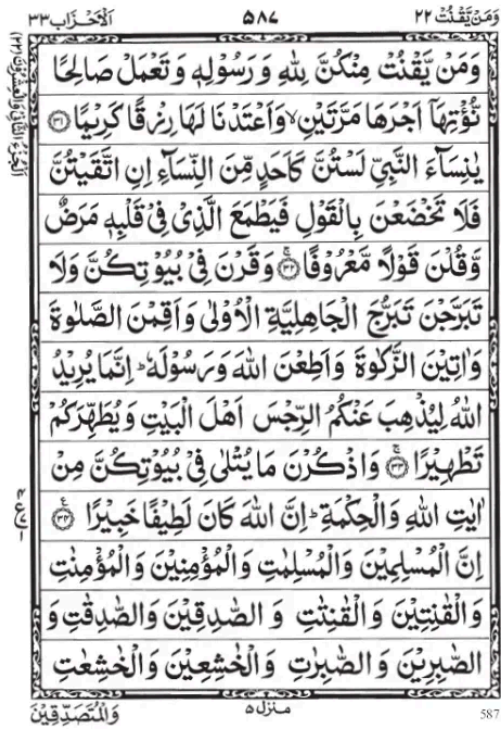 وَمَنْ يَّقْنُتْ ٢٢ ٥٨٧ اَلْاَحْزَاب ٣٣
وَمَنْ يَّقْنُتْ مِنْكُنَّ لِلّٰهِ وَرَسُوْلِهٖ وَتَعْمَلْ صَالِحًا
نُّؤْتِهَآ اَجْرَهَا مَرَّتَيْنِ ۙ وَاَعْتَدْنَا لَهَا رِزْقًا كَرِيْمًا ﴿٣١﴾
يٰنِسَآءَ النَّبِيِّ لَسْتُنَّ كَاَحَدٍ مِّنَ النِّسَآءِ اِنِ اتَّقَيْتُنَّ
فَلَا تَخْضَعْنَ بِالْقَوْلِ فَيَطْمَعَ الَّذِيْ فِيْ قَلْبِهٖ مَرَضٌ
وَّقُلْنَ قَوْلًا مَّعْرُوْفًا ﴿٣٢﴾ ۚ وَقَرْنَ فِيْ بُيُوْتِكُنَّ وَلَا
تَبَرَّجْنَ تَبَرُّجَ الْجَاهِلِيَّةِ الْاُوْلٰى وَاَقِمْنَ الصَّلٰوةَ
وَاٰتِيْنَ الزَّكٰوةَ وَاَطِعْنَ اللّٰهَ وَرَسُوْلَهٗ ؕ اِنَّمَا يُرِيْدُ
اللّٰهُ لِيُذْهِبَ عَنْكُمُ الرِّجْسَ اَهْلَ الْبَيْتِ وَيُطَهِّرَكُمْ
تَطْهِيْرًا ﴿٣٣﴾ ۚ وَاذْكُرْنَ مَا يُتْلٰى فِيْ بُيُوْتِكُنَّ مِنْ
اٰيٰتِ اللّٰهِ وَالْحِكْمَةِ ؕ اِنَّ اللّٰهَ كَانَ لَطِيْفًا خَبِيْرًا ﴿٣٤﴾ ع
اِنَّ الْمُسْلِمِيْنَ وَالْمُسْلِمٰتِ وَالْمُؤْمِنِيْنَ وَالْمُؤْمِنٰتِ
وَالْقٰنِتِيْنَ وَالْقٰنِتٰتِ وَالصّٰدِقِيْنَ وَالصّٰدِقٰتِ وَ
الصّٰبِرِيْنَ وَالصّٰبِرٰتِ وَالْخٰشِعِيْنَ وَالْخٰشِعٰتِ
وَالْمُتَصَدِّقِيْنَ
منزل ٥
587